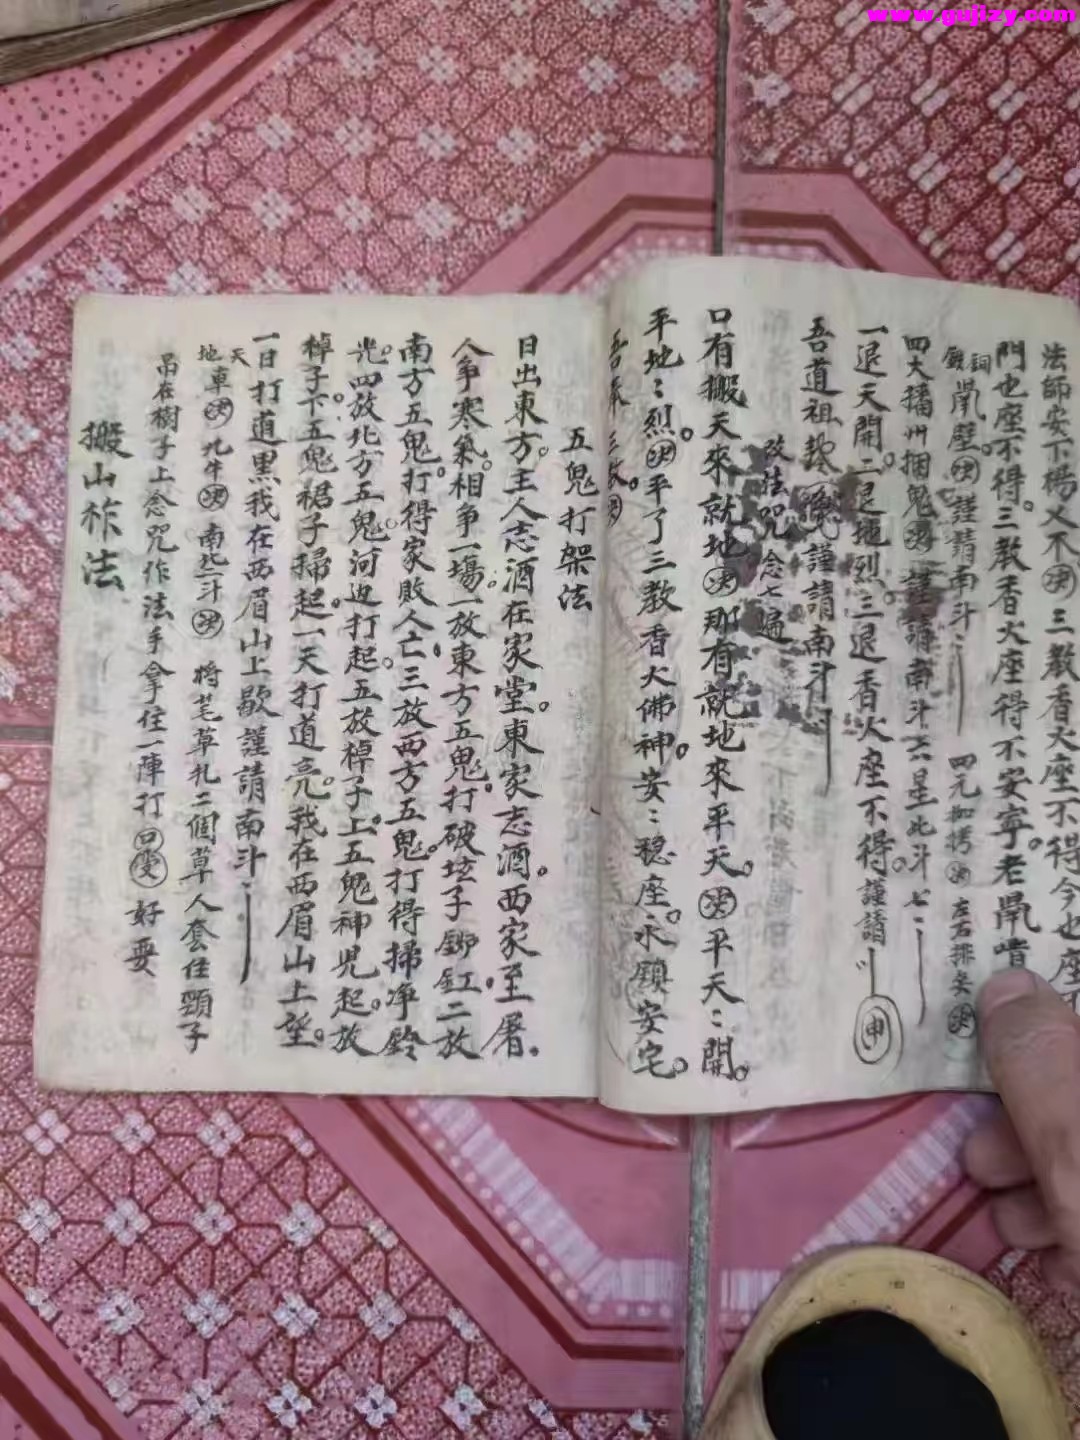 www.gujizy.com
法師安下楊乂不㊋三教香火座不得今也座
門也座不得。三教香火座得不安寧。老鼡啃
詞
鼡壁謹請南斗
四元枷拷
左右排安
四大播州捆鬼謹請南斗六星北斗七
一退天開二退地烈三退香火座不得。謹請
申
吾道祖謹請南斗
改法咒念七遍
口有搬天來就地那有就地來平天。平天:開。
平地:烈。平了三教香火佛神。安:穩座。永鎮安宅。
吾奉三教
五鬼打架法
日出東方。主人志酒在家堂。東家志酒。西家至屠。
人争寒氣。相争一場。一放東方五鬼。打破坛子鉚釭二放
南方五鬼。打得家敗人亡三放西方五鬼。打得掃净鈴
光。四放北方五鬼。河边打起。五放棹子上。五鬼神児起。放
棹子下。五鬼裙子掃起。一天打道亮。我在西眉山上望。
一日打道黑我在西眉山上歇謹請南斗
天
地車九牛南北二斗將茅草扎二個草人套住頸子
吊在樹子上念咒作法手拿住一陣打回变好耍
搬山柞法